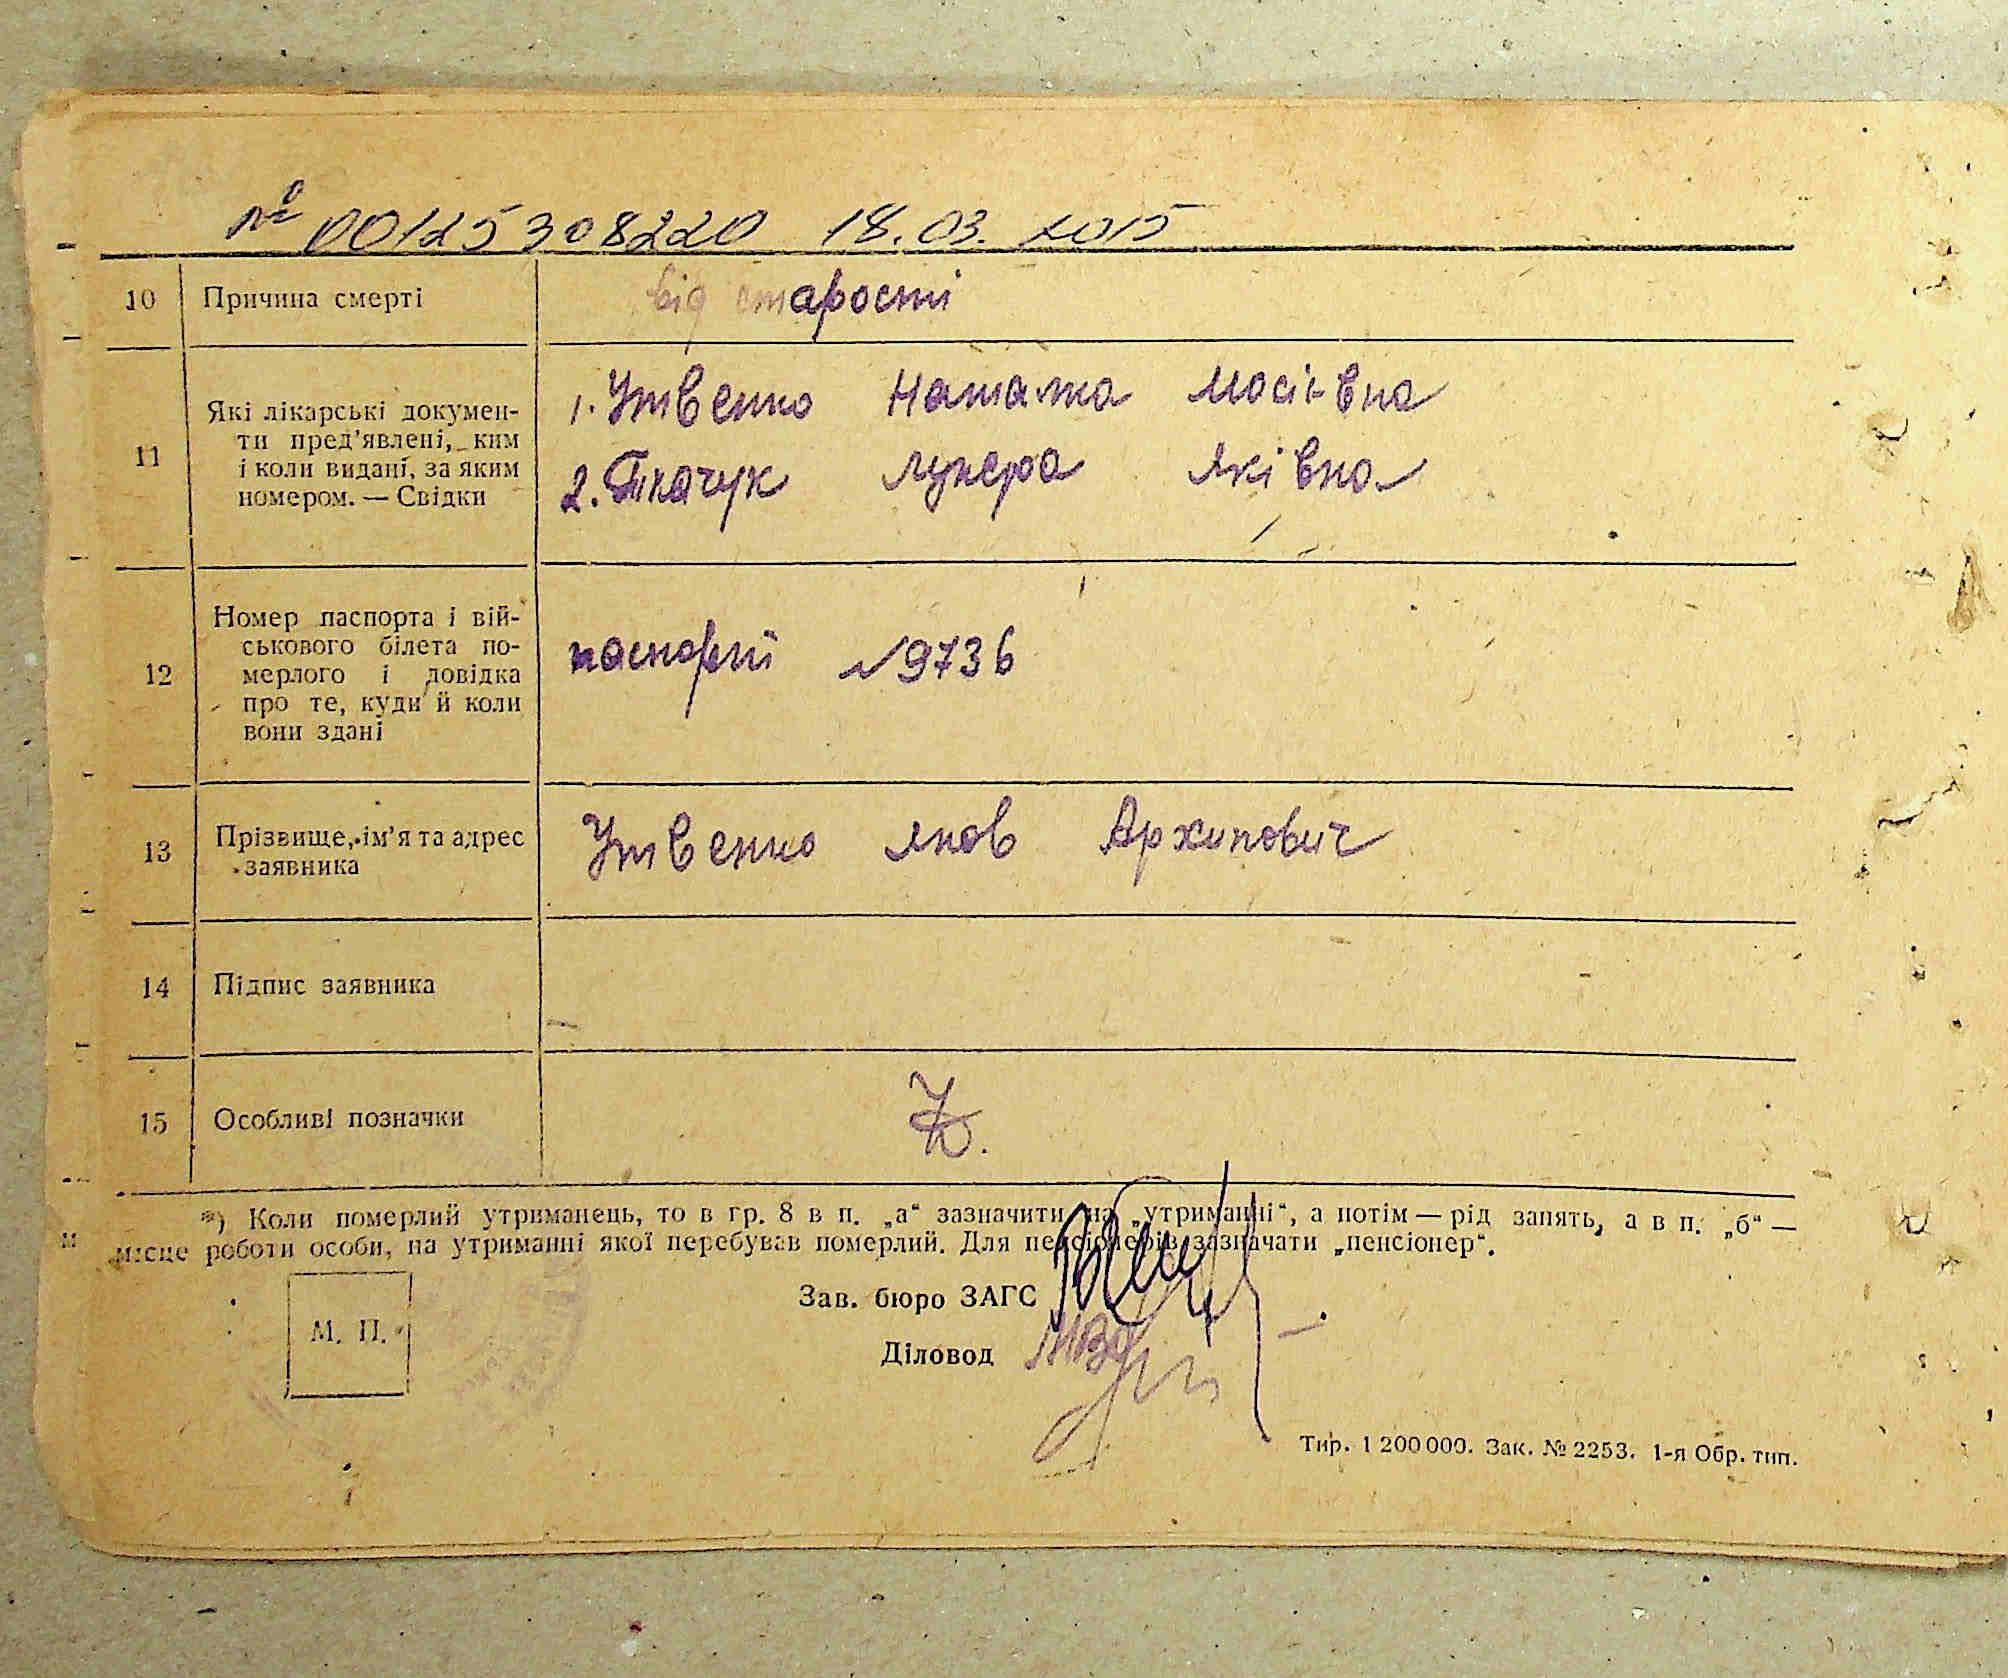 № 00125308220 18.03.2015
10 Причина смерті від старости
11 Які лікарські докумен-
ти пред'явлені, ким
і коли видані, за яким
номером. — Свідки
1. Утвенко Наталка Мосіівна
2. Ткачук Лукера Яківна
12 Номер паспорта і вій-
ськового білета по-
мерлого і довідка
про те, куди й коли
вони здані
паспорт №9736
13 Прізвище, ім'я та адрес
заявника
Утвенко Яков Архипович
14 Підпис заявника
15 Особливі позначки
*) Коли померлий утриманець, то в гр. 8 в п. „а“ зазначити на „утриманні“, а потім — рід занять, а в п. „б“ —
місце роботи особи, на утриманні якої перебував померлий. Для пенсіонерів зазначати „пенсіонер“.
Зав. бюро ЗАГС
М. П.
Діловод
Тир. 1 200 000. Зак. № 2253. 1-я Обр. тип.